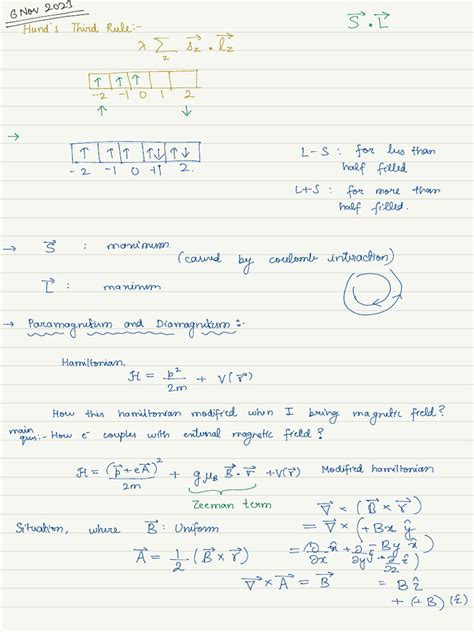 6 Nov 2023
Hund's Third Rule:-
S⃗ . L⃗
λ Σ_z s⃗_z . l⃗_z
↑ ↑ ↑
-2 -1 0 1 2
↑ ↑
→
↑ ↑ ↑ ↑↓ ↑↓
-2 -1 0 +1 2
L-S : for less than
half filled
L+S : for more than
half filled.
→ S⃗ : maximum
(caused by coulomb interaction)
L⃗ : maximum
→ Paramagnetism and Diamagnetism:-
Hamiltonian.
H = p²/2m + V(r⃗)
How this hamiltonian modified when I bring magnetic field?
main ques:- How e⁻ couples with external magnetic field?
H = (p⃗+eA⃗)²/2m + gμ_B B⃗.r⃗ + V(r⃗) Modified hamiltonian
Zeeman term
Situation, where B⃗: Uniform
A⃗ = 1/2 (B⃗ × r⃗)
∇⃗ × A⃗ = B⃗
∇⃗ × (B⃗ × r⃗)
= ∇⃗ × (+Bx ŷ
= (∂/∂x x̂ + ∂/∂y ŷ + ∂/∂z ẑ) - By x̂)
= B ẑ
+ (+B) (ẑ)